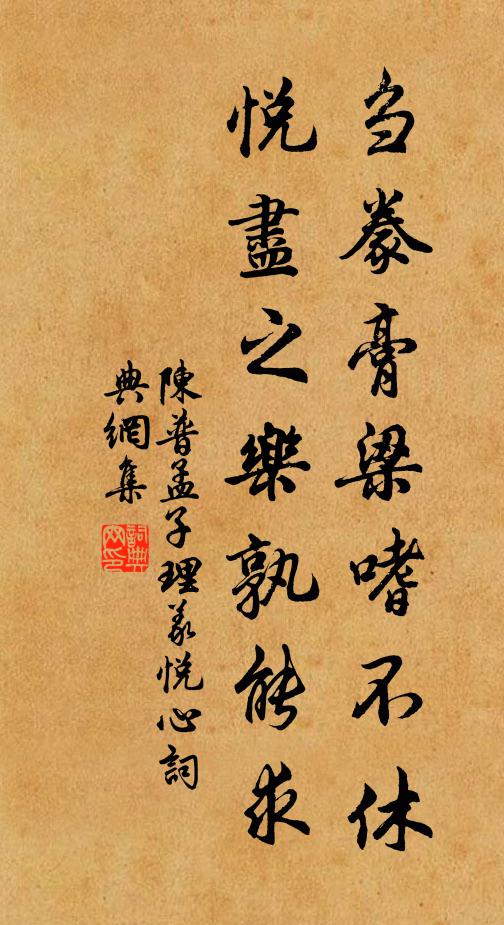 刍豢膏粱嗜不休
悅盡之樂孰能求
陳普孟子理義悅心詞
典網集
詞典
网印